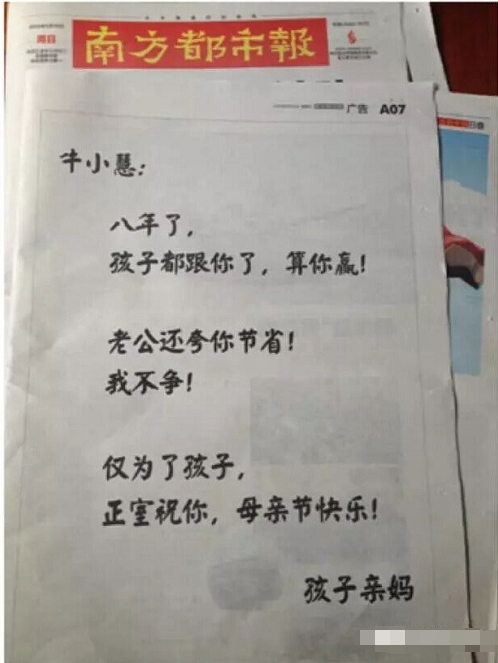 周日
南方都市報
广告 A07
牛小慧:
八年了,
孩子都跟你了,算你赢!
老公还夸你节省!
我不争!
仅为了孩子,
正室祝你,母亲节快乐!
孩子亲妈